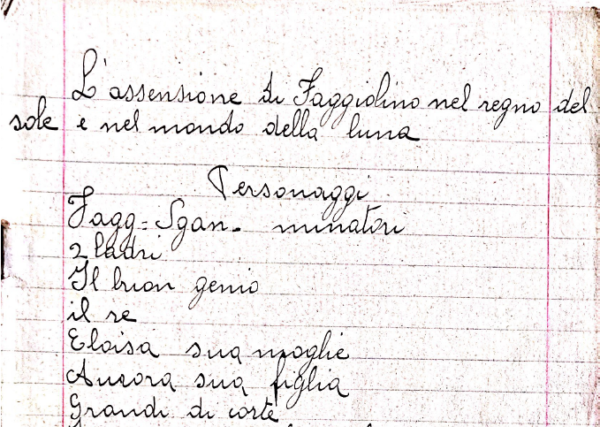 L'assensione di Faggiolino nel regno del
sole e nel mondo della luna
Personaggi
Fagg=Sgan- minatori
2 ladri
Il buon genio
il re
Eloisa sua moglie
Aurora sua figlia
Grandi di corte